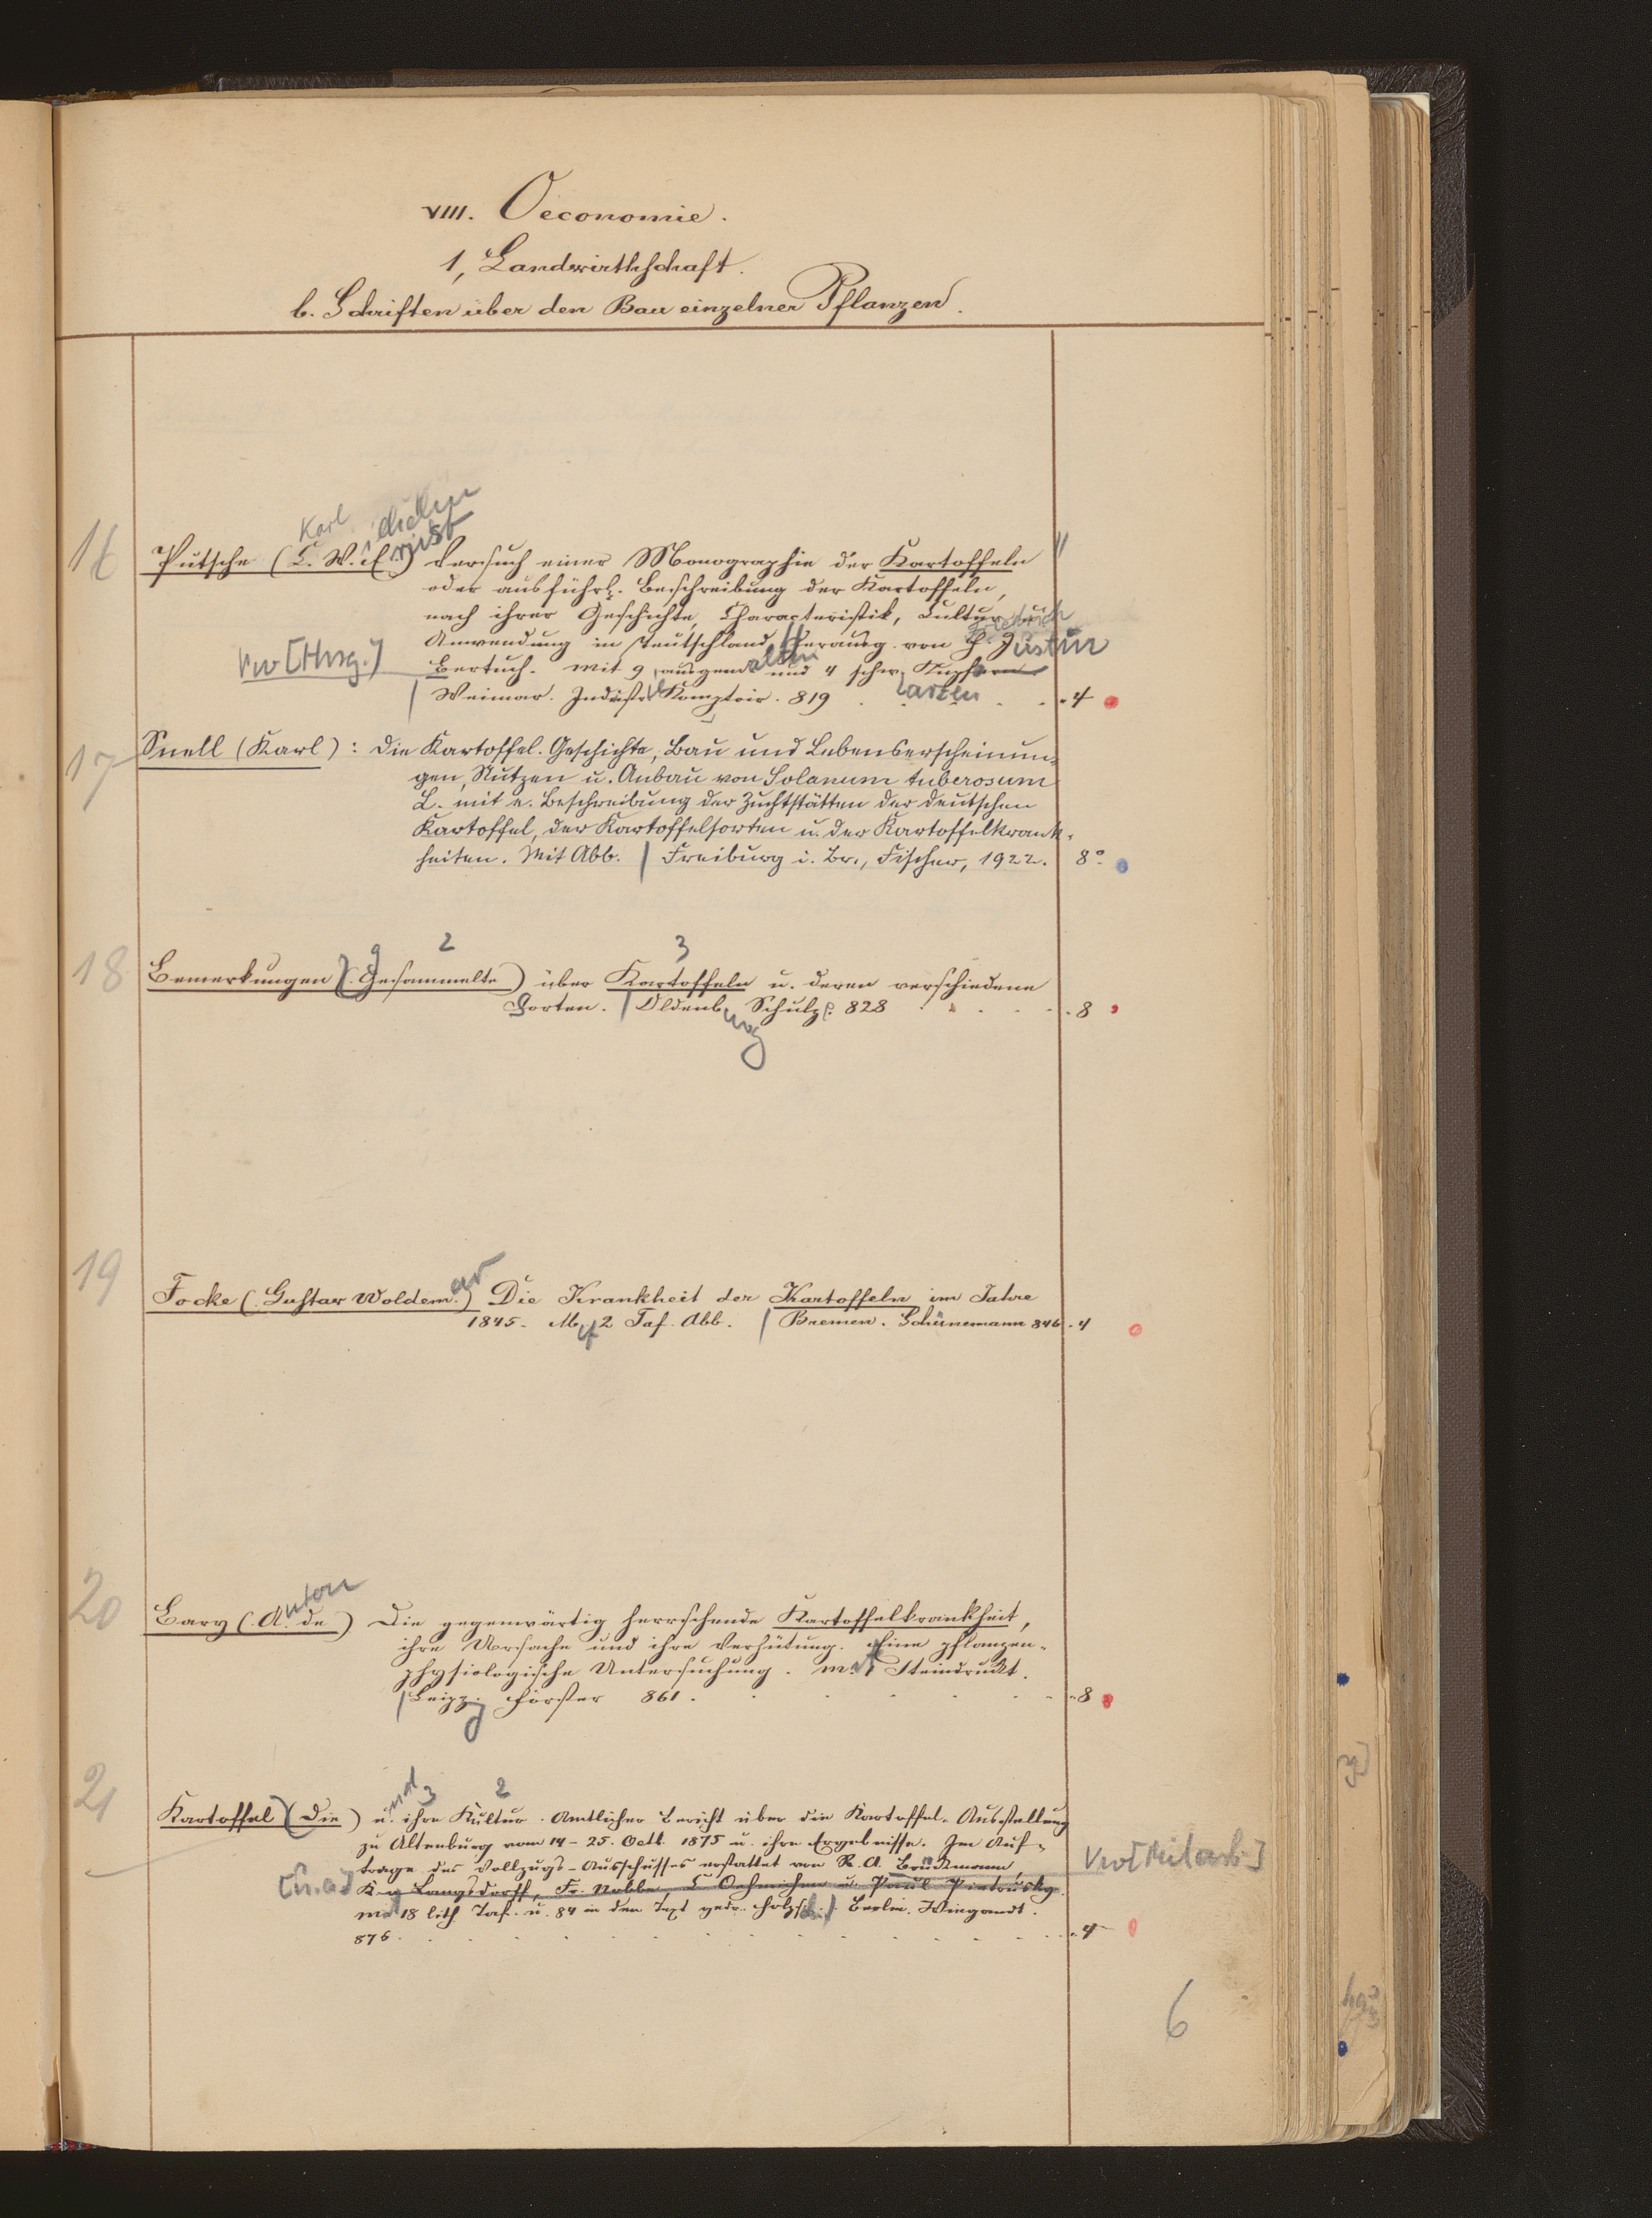 VIII. Oeconomie.
1, Landwirthschaft.
b. Schriften über den Bau einzelner Pflanzen.
Karl ilhelm
16 Putsche (C. W. E.) rnst Versuch einer Monographie der Kartoffeln
oder ausführl. Beschreibung der Kartoffeln,
nach ihrer Geschichte, Characteristik, Cultur und
Anwendung in Teutschland. Herausg. von F. Justin
Vw [Hrsg.] Bertuch. Mit 9 ausgemalten und 4 schwarzen Kupfern
Weimar. Industr. Komptoir. 819 . . . . . 4
17 Snell (Karl): Die Kartoffel. Geschichte, Bau und Lebenserscheinun-
gen, Nutzen u. Anbau von Solanum tuberosum
L. mit e. Beschreibung der Zuchtstätten der deutschen
Kartoffel, der Kartoffelsorten u. der Kartoffelkrank-
heiten. Mit Abb. | Freiburg i. Br., Fischer, 1922. 8°
g 2 3
18 Bemerkungen (Gesammelte) über Kartoffeln u. deren verschiedene
Sorten. | Oldenburg Schulze 828 . . . . . 8
19 Focke (Gustav Woldemar) Die Krankheit der Kartoffeln im Jahre
1845. Mit 2 Taf. Abb. | Bremen. Schünemann 846. 4
20 Bary (Anton de) Die gegenwärtig herrschende Kartoffelkrankheit,
ihre Ursache und ihre Verhütung. Eine pflanzen-
physiologische Untersuchung. Mit Steindruckt.
| Leipzig Förster 861. . . . . . . 8
nd 3 2
21 Kartoffel (Die) u. ihre Kultur. Amtlicher Bericht über die Kartoffel-Ausstellung
zu Altenburg vom 14-25. Octb. 1875 u. ihre Ergebnisse. Im Auf-
trage des Vollzugs-Ausschusses erstattet von R. A. Brückmann, Vw [Mitarb.]
[u.a.] K v Langsdorff, Fr. Nobbe, C Oehmichen u. Paul Pietrusky.
mit 18 lith Taf. u. 84 in den Text gedr. Holzsch. | Berlin. Wiegandt.
876. . . . . . . . 4
6